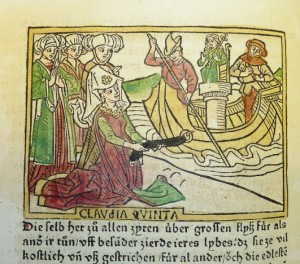 CLAVDIA QVINTA
Die selb her zů allen zyten über grossen flyß für als
and' ir tůn/ vff besůder zierde ieres lybes/ dz sie ze vil
kostlich vn̄ vß gestrichen/ für al ander/ öch die edleste